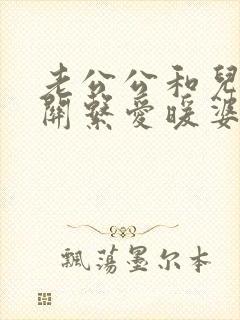 老公公和兒
關繫愛暖婆
飄蕩墨尔本